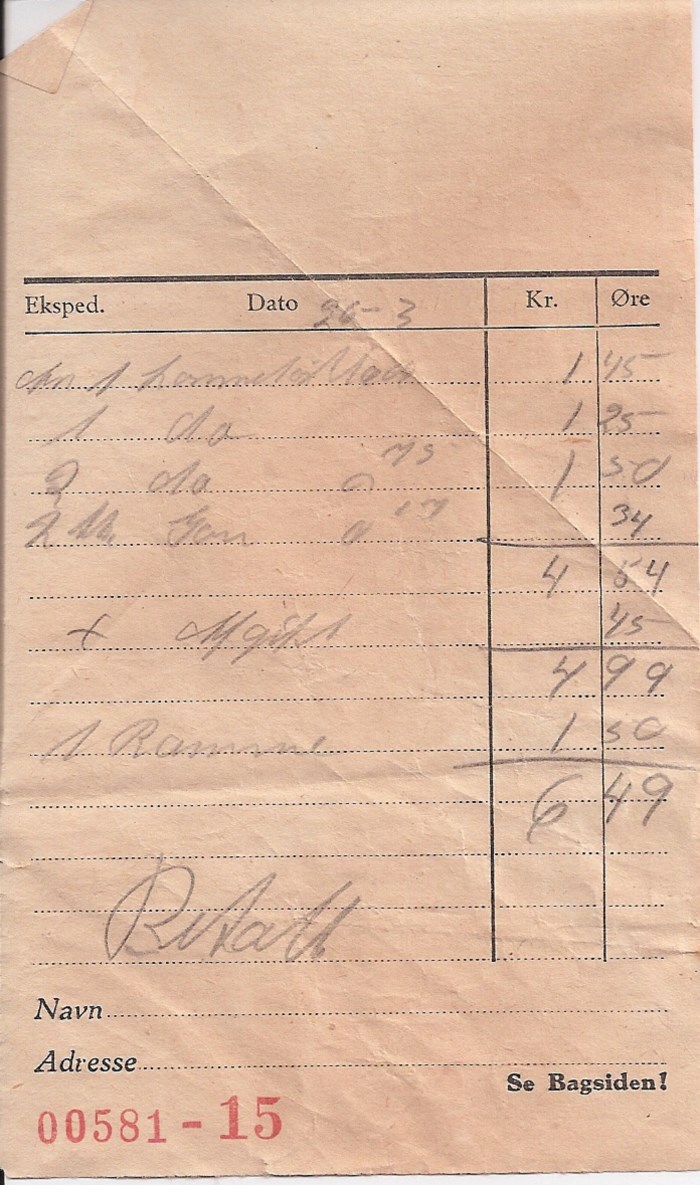 Eksped. Dato 26-3 Kr. Øre
1 1 45
1 do 1 25
2 do a 75 1 50
2 a 17 34
4 54
+ Afgift 45
4 99
1 Ramme 1 50
6 49
Betalt
Navn
Adresse
Se Bagsiden!
00581-15